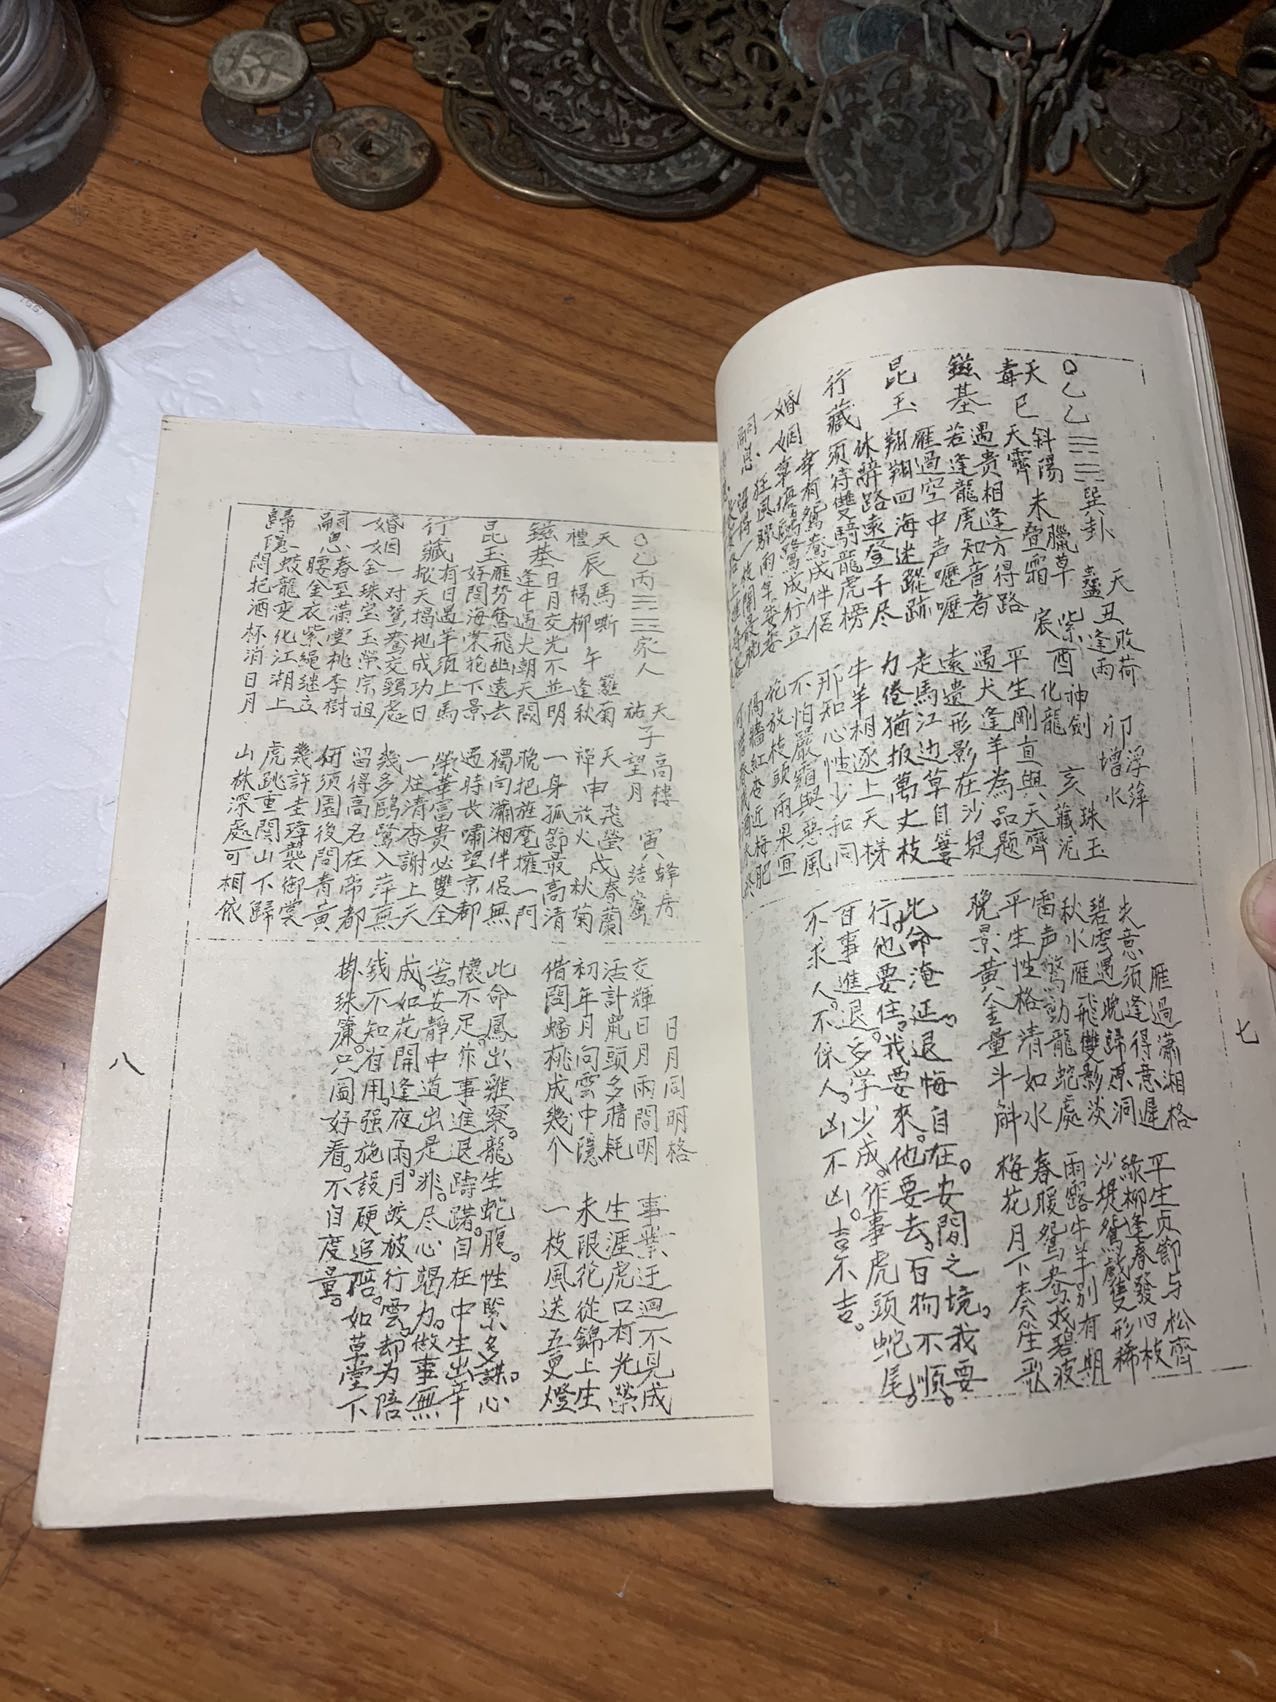 〇乙乙
巽卦
天毒
巳斜陽
未臘草
天丑敗荷
天齊
疊霜
宸
紫酉神劍
化龍
逢雨
卯浮萍
增水
亥珠玉
藏泥
鎡基
遇貴相逢方得路
平生剛直與天齊
若逢龍虎知音者
遇犬逢羊為品題
昆玉
雁過空中声嚦嚦
遠遺形影在沙堤
翔翔四海迷蹤跡
走馬江边草自萋
行藏
休辭路遠登千尽
力倦猶扳萬丈枝
須待雙騎龍虎榜
牛羊相逐上天梯
婚姻
幸有鴛鴦成伴侶
那知心性少和同
不怕嚴霜與惡風
嗣恩
狂風驟雨
花放枝頭兩果宜
隔牆紅杏近梅肥
雁過瀟湘格
失意須逢得意遲
平生贞節与松齊
碧雲遇晚歸東洞
綠柳逢春發旧枝
秋水雁飛雙影淡
沙堤鴛戲隻形稀
雷声驚動龍蛇處
雨露牛羊別有期
平生性格清如水
春暖鴛鴦戏碧波
晚景黄金量斗斛
梅花月下奏笙歌
此命淹延。退悔自在。安間之境。我要
行。他要住。我要來。他要去。百物不順。
百事進退。多学少成。作事虎頭蛇尾。
不求人。不係人。凶不凶。吉不吉。
七
〇乙丙
家人
天祐
天禮
辰馬嘶
楊柳
午籬菊
逢秋
子高樓
望月
寅蜂房
結蜜
天禅
申飛螢
放火
戌春蘭
秋菊
鎡基
日月交光不並明
一身孤節最高清
逢牛遇火朝天闕
晚把旌麾擁一門
昆玉
雁坊奋飛幽遠去
獨向瀟湘伴侶無
好問海棠花下景
過時長嘯望京都
行藏
有日遇羊須上馬
榮華富貴必雙全
掀天揭地成功日
一炷清香謝上天
婚姻
一对鴛鴦交頸處
幾多鷗鷺入萍蕪
金珠宝玉榮宗祖
留得高名在帝都
嗣恩
春至滿堂桃李樹
何須園後問青黄
腰金衣紫繩継立
幾許圭璋襲御裳
歸隱
蛟龍变化江湖上
虎跳重関山下歸
悶把酒杯消日月
山林深處可相依
日月同明格
交輝日月兩間明
事業迂迴不見成
活計鼠頭多暗耗
生涯虎口有光榮
初年月向雲中隱
末限花從錦上生
借問蟠桃成幾个
一枝風送五更燈
此命鳳出雞窠。龍生蛇腹。性緊多謀。心
懷不足。作事進退躊躇。自在中生出辛
苦。安靜中道出是非。尽心竭力。做事無
成。如花開逢夜雨。月皎被行雲。却为陪
钱不知有用。强施設硬追陪。如草堂下
掛珠簾。只圖好看。不自度量。
八